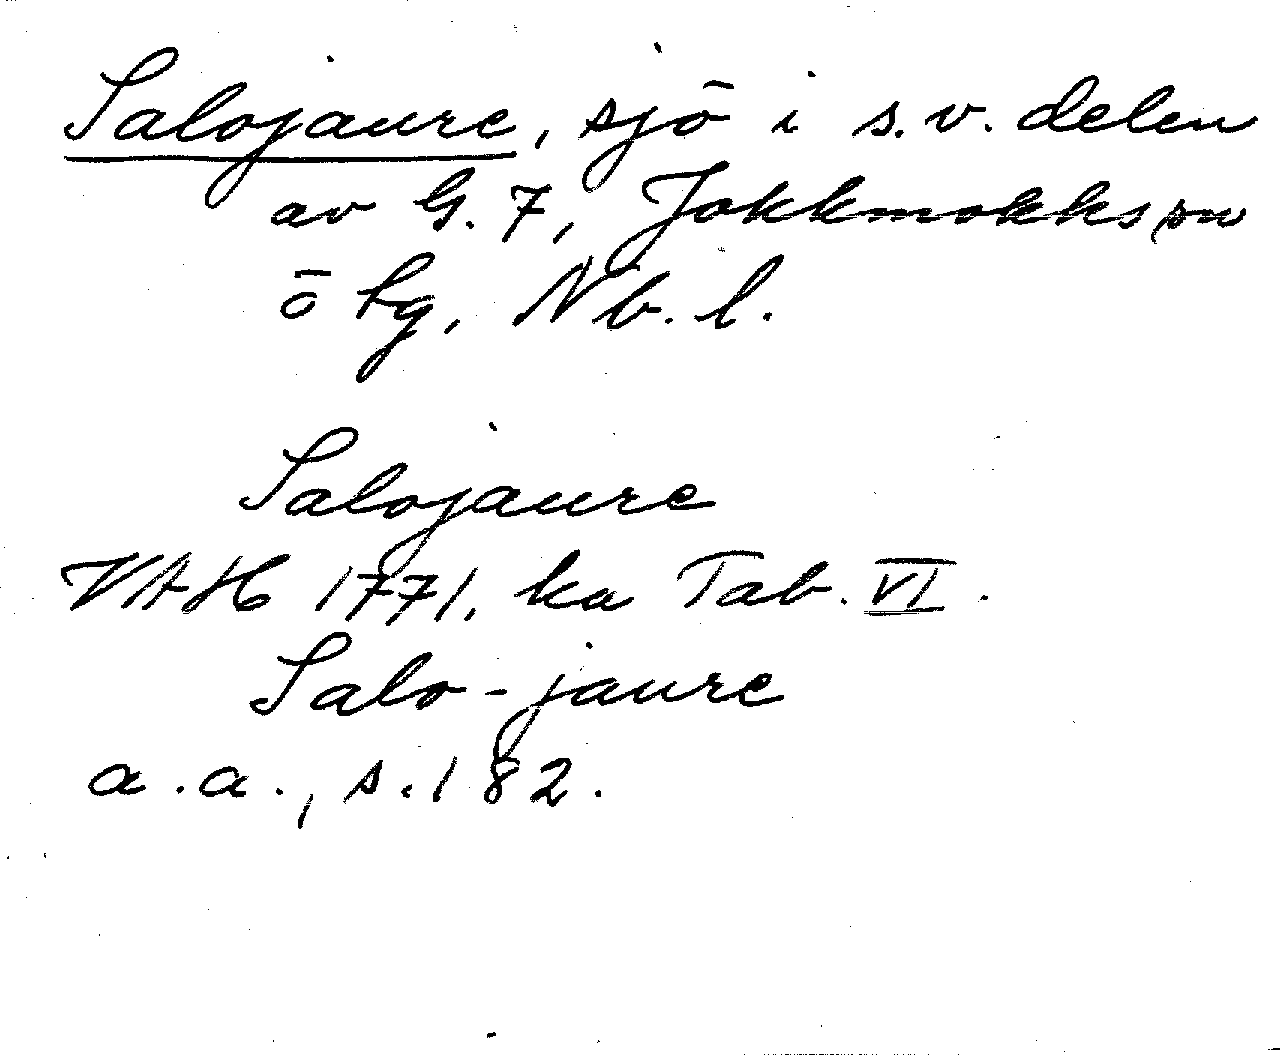 Salojaure, sjö i s.v. delen
av G. 7, Jokkmokks sn
ö bg, Nb. l.
Salojaure
VAH 1771, ka Tab. VI.
Salo-jaure
a.a., s. 182.